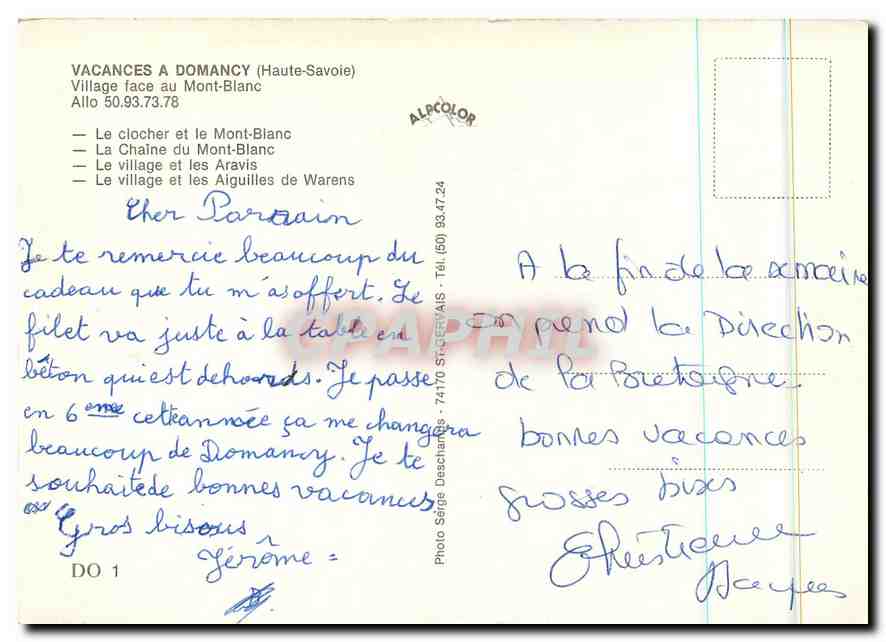 VACANCES A DOMANCY (Haute-Savoie)
Village face au Mont-Blanc
Allo 50.93.73.78
— Le clocher et le Mont-Blanc
— La Chaîne du Mont-Blanc
— Le village et les Aravis
— Le village et les Aiguilles de Warens
ALPCOLOR
Cher Parrain
Je te remercie beaucoup du
cadeau que tu m'as offert. Le
filet va juste à la table en
bêton qui est dehors. Je passe
en 6ème cette année ça me changera
beaucoup de Domancy. Je te
souhaite de bonnes vacances.
Gros bisous
Jérôme =
DO 1
Photo Serge Deschamps - 74170 ST-GERVAIS - Tél. (50) 93.47.24
CPAPHIL
A la fin de la semaine
on prend la Direction
de la Bretagne
bonnes vacances
grosses bises
Christiane
Jacques